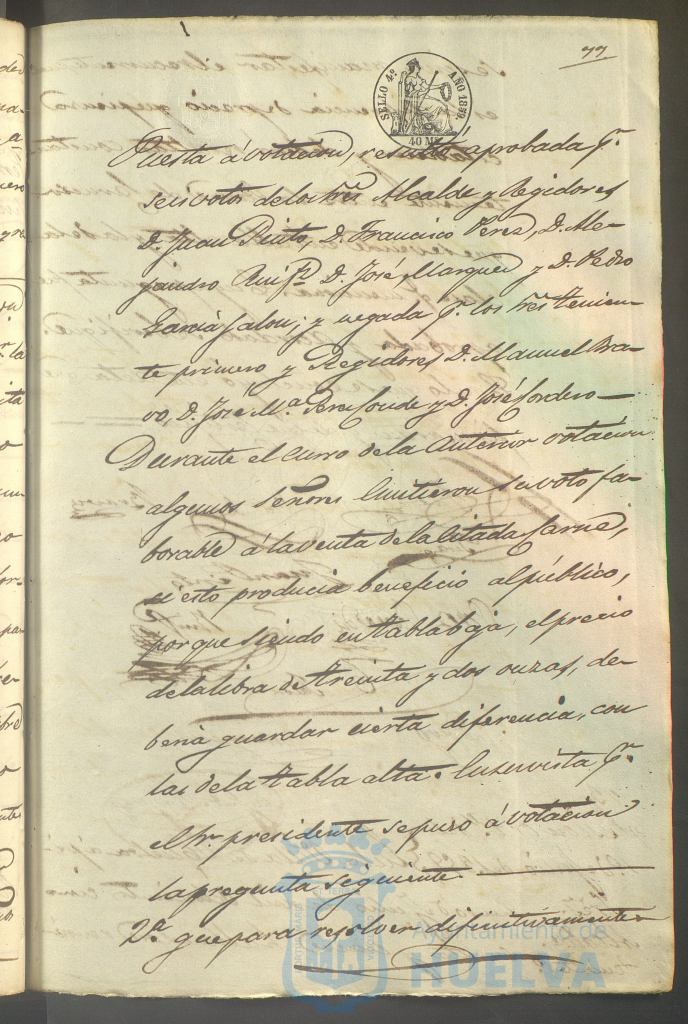 77
SELLO 4º AÑO 1859.
40 Ms.
Puesta á votacion, resultó aprobada pr.
seis votos de los Sres Alcalde y Regidores
D. Juan Pinto, D. Francisco Perez, D. Ale-
jandro D. José Marquez y D. Pedro
Garcia Jalon; y negada pr. los Sres Tenien-
te primero y Regidores D. Manuel Bra-
vo, D. José Ma. Perez Conde y D. José Cordero
Durante el curso de la anterior votacion
algunos Señores emitieron su voto fa-
borable á la venta de la citada Carne,
si esto producia beneficio al público,
porque siendo en tabla baja, el precio
de la libra de treinta y dos onzas, de-
beria guardar cierta diferencia, con
las de la tabla alta. En su vista pr.
el Sr. presidente se puso á votacion
la pregunta siguiente
2ª que para resolver difinitivamente
Ayuntamiento de
HUELVA